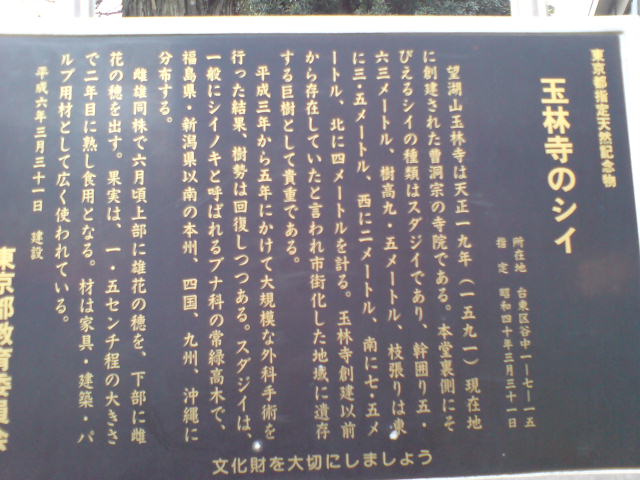 東京都指定天然記念物
玉林寺のシイ
所在地 台東区谷中一－七－一五
指定 昭和四十年三月三十一日
望湖山玉林寺は天正一九年（一五九一）現在地
に創建された曹洞宗の寺院である。本堂裏側にそ
びえるシイの種類はスダジイであり、幹囲り五・
六三メートル、樹高九・五メートル、枝張りは東
に三・五メートル、西に二メートル、南に七・五メ
ートル、北に四メートルを計る。玉林寺創建以前
から存在していたと言われ市街化した地域に遺存
する巨樹として貴重である。
平成三年から五年にかけて大規模な外科手術を
行った結果、樹勢は回復しつつある。スダジイは、
一般にシイノキと呼ばれるブナ科の常緑高木で、
福島県・新潟県以南の本州、四国、九州、沖縄に
分布する。
雌雄同株で六月頃上部に雄花の穂を、下部に雌
花の穂を出す。果実は、一・五センチ程の大きさ
で二年目に熟し食用となる。材は家具・建築・パ
ルプ用材として広く使われている。
平成六年三月三十一日 建設
東京都教育委員会
文化財を大切にしましょう